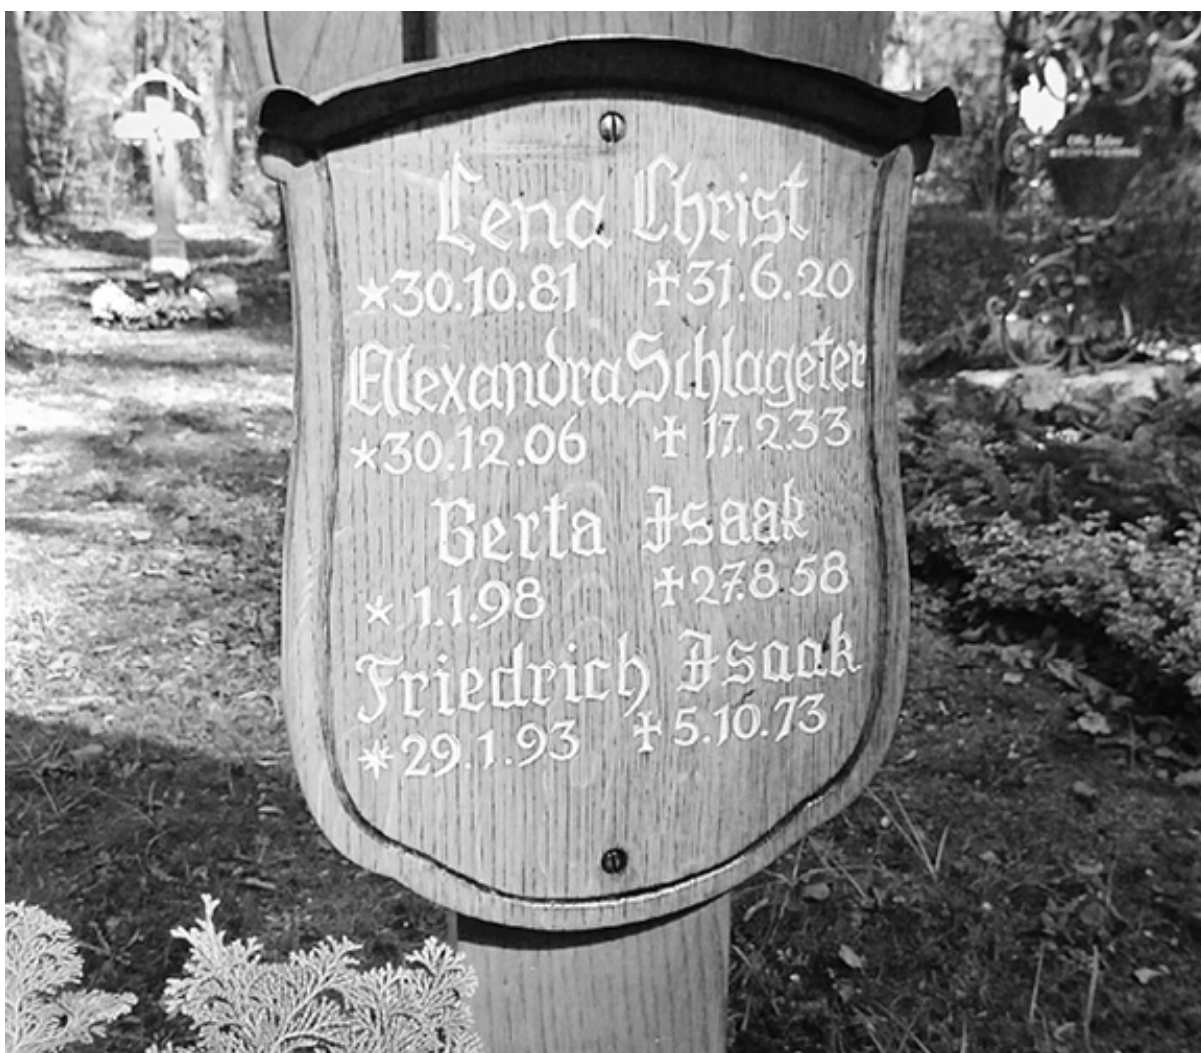 Lena Christ
*30.10.81 †31.6.20
Alexandra Schlageter
*30.12.06 † 17.2.33
Berta Isaak
* 1.1.98 †27.8.58
Friedrich Isaak
*29.1.93 †5.10.73